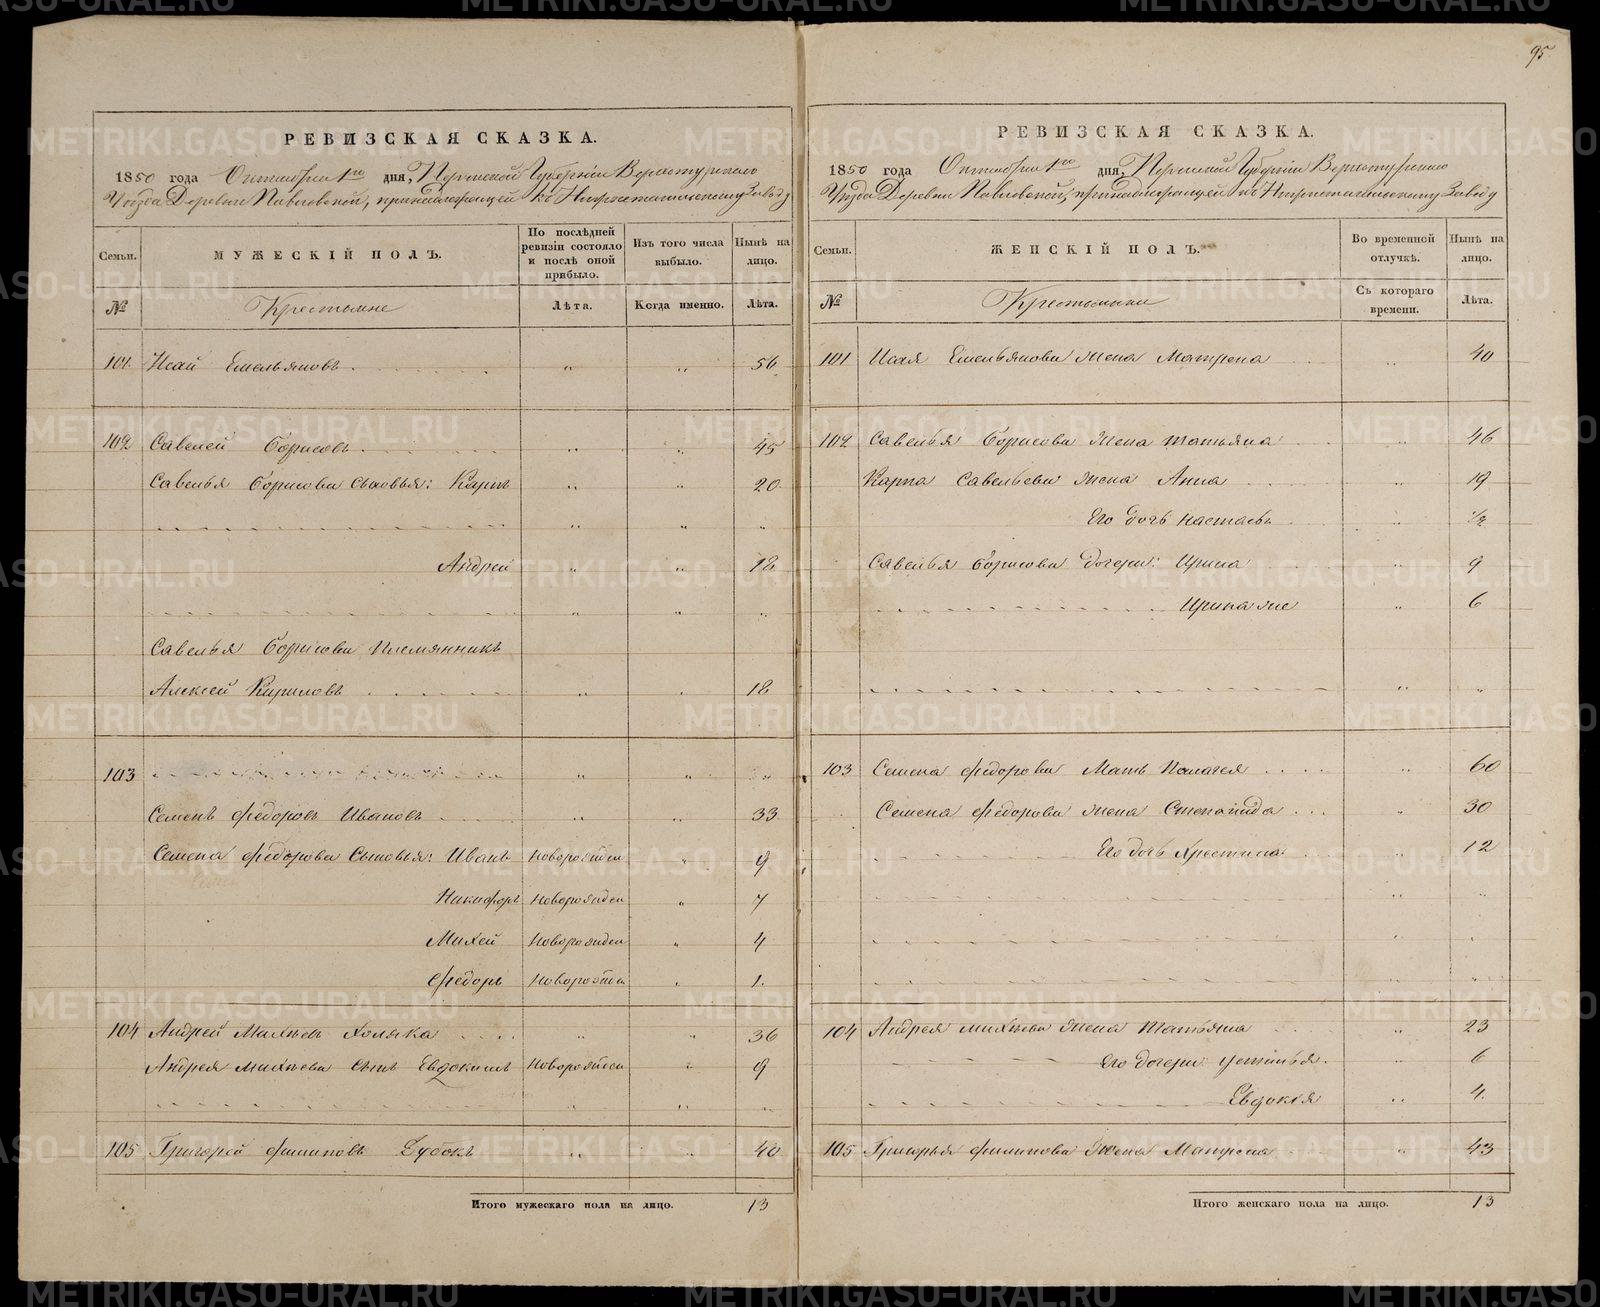 95
РЕВИЗСКАЯ СКАЗКА.
1850 года Октября 1го дня, Пермской Губерніи Верхотурскаго
Уѣзда Деревни Павловской, принадлежащей къ Нижнетагильскому Заводу
Семьи. МУЖЕСКІЙ ПОЛЪ. По послѣдней ревизіи состояло и послѣ оной прибыло. Изъ того числа выбыло. Нынѣ на лицо.
№ Крестьяне Лѣта. Когда именно. Лѣта.
101 Исай Емельяновъ . . . . . „ „ 56
102 Савелей Борисовъ . . . . . „ „ 45
Савелья Борисова сыновья: Карпъ „ „ 20
„ „ „
Андрей „ „ 18
„ „ „
Савелья Борисова Племянникъ
Алексей Кириловъ . . . . . „ „ 18
103 „ „ „
Семенъ Федоровъ Ивановъ . . . . „ „ 33
Семена Федорова Сыновья: Иванъ Новорожден „ 9
Никифоръ Новорожден „ 7
Михей Новорожден „ 4
Федоръ Новорожден „ 1
104 Андрей Михѣевъ Холяка . . . . „ „ 36
Андрея Михѣева сынъ Евдокимъ Новорожден „ 9
„ „ „
105 Григорей Филиповъ Дубокъ „ „ 40
Итого мужескаго пола на лицо. 13
РЕВИЗСКАЯ СКАЗКА.
1850 года Октября 1го дня, Пермской Губерніи Верхотурскаго
Уѣзда Деревни Павловской, принадлежащей къ Нижнетагильскому Заводу
Семьи. ЖЕНСКІЙ ПОЛЪ. Во временной отлучкѣ. Нынѣ на лицо.
№ Крестьянки Съ котораго времени. Лѣта.
101 Исая Емельянова жена Матрена . . . „ 40
102 Савелья Борисова жена Татьяна . . . „ 46
Карпа Савельева жена Анна . . . . „ 19
Его дочь Настасья . . . „ 1/2
Савелья Борисова дочери: Ирина „ 9
Ирина же „ 6
„ „
103 Семена Федорова Мать Палагея . . . . „ 60
Семена Федорова жена Степанида . . . „ 30
Его дочь Крестина „ 12
„ „
„ „
„ „
104 Андрея Михѣева жена Татьяна . . „ 23
Его дочери Устинья. „ 6
Евдокія „ 4
105 Григорья Филипова жена Матрена . . „ 43
Итого женскаго пола на лицо. 13
METRIKI.GASO-URAL.RU